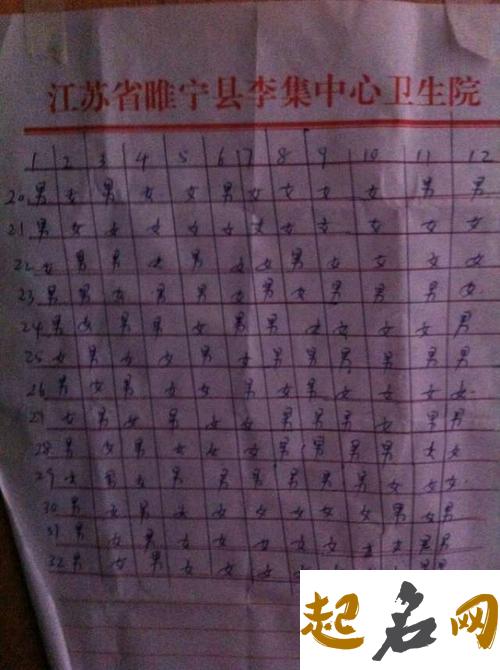 江苏省睢宁县李集中心卫生院
1 2 3 4 5 6 7 8 9 10 11 12
20 男 女 男 女 女 男 女 女 女 女 男 男
21 男 女 女 女 女 女 女 女 女 女 女 女
22 女 男 男 女 男 女 女 男 女 女 女 女
23 男 男 女 男 男 男 女 男 女 男 男 男 女
24 男 女 男 男 女 男 男 女 女 女 女 男
25 女 男 女 女 男 女 男 男 男 男 男 男
26 男 女 男 女 女 男 女 男 女 女 女 女
27 女 男 女 男 女 女 男 男 男 女 男 男
28 男 女 男 女 女 女 男 男 男 男 女 女
29 女 男 女 男 男 男 男 男 男 女 女 女
30 男 女 男 女 女 女 女 女 女 男 女 男
31 男 女 男 女 女 女 女 女 女 女 男 男
32 男 女 男 女 女 女
起名网